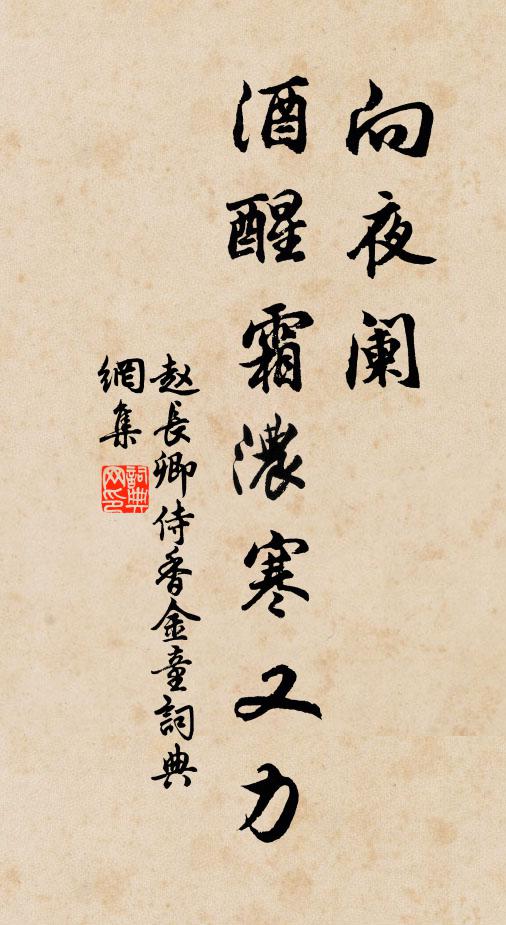 向夜阑
酒醒霜濃寒又力
赵長卿侍香金童詞典
網集
詞典
网印